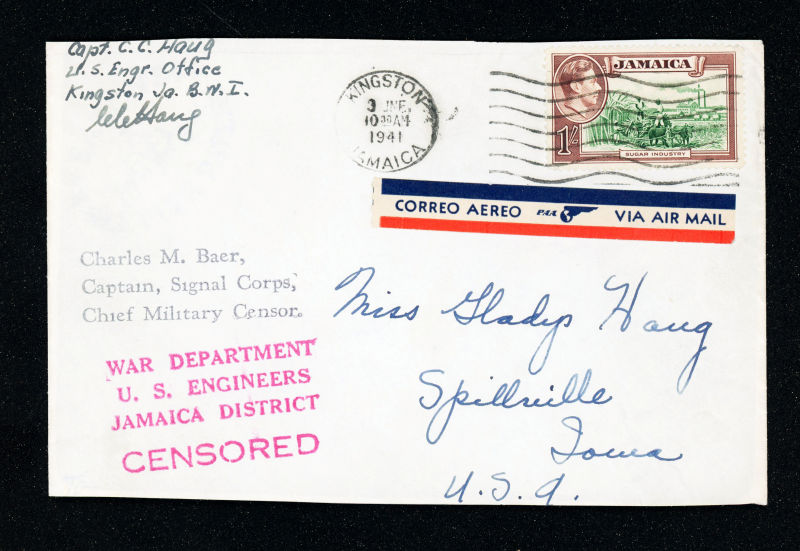 Capt. C. C. Haug
U.S. Engr. Office
Kingston Ja. B.W.I.
CCHaug
KINGSTON
3 JNE.
1941
JAMAICA
JAMAICA
1/-
SUGAR INDUSTRY
CORREO AEREO PAA VIA AIR MAIL
Charles M. Baer,
Captain, Signal Corps,
Chief Military Censor.
WAR DEPARTMENT
U. S. ENGINEERS
JAMAICA DISTRICT
CENSORED
Miss Gladys Haug
Spillville
Iowa
U.S.A.